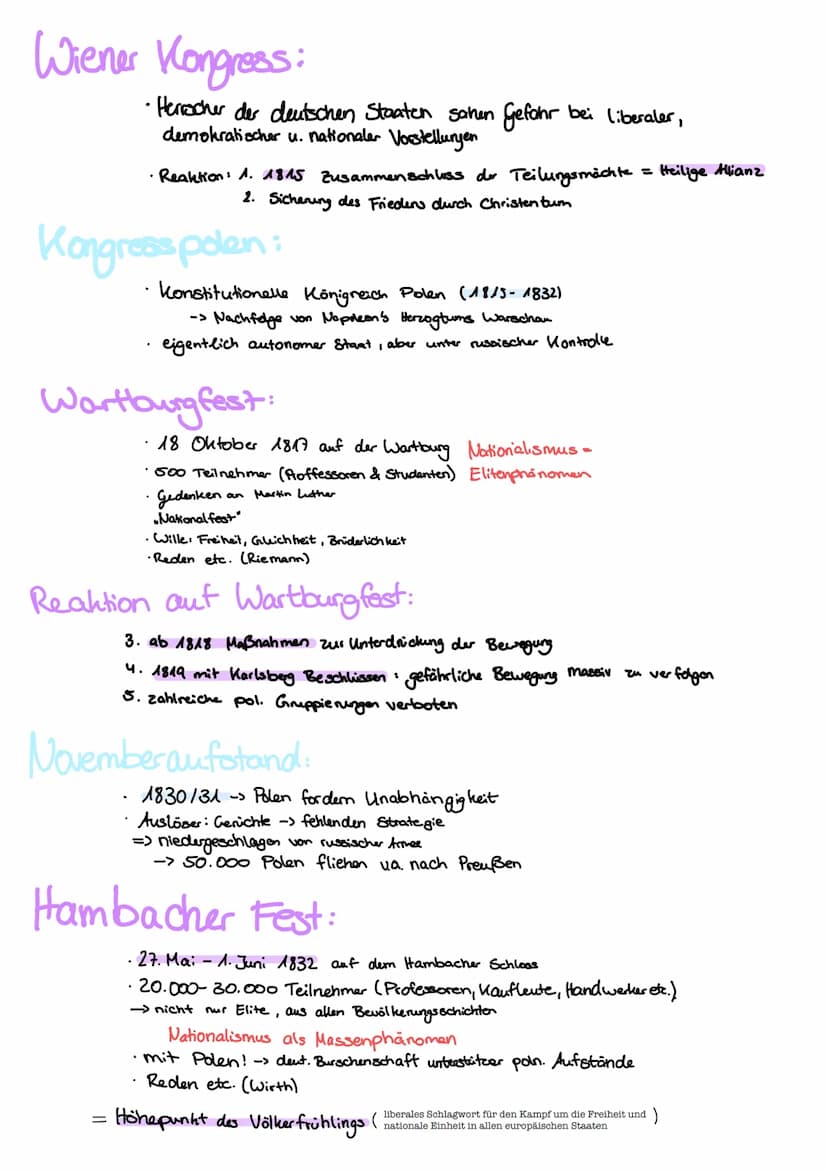 Wiener Kongress:
· Herrscher der deutschen Staaten sahen Gefahr bei liberaler,
demokratischer u. nationaler Vorstellungen
· Reaktion: 1. 1815 Zusammenschluss der Teilungsmächte = Heilige Allianz
2. Sicherung des Friedens durch Christentum
Kongresspolen:
· Konstitutionelle Königreich Polen (1815-1832)
-> Nachfolge von Napoleon's Herzogtums Warschau
· eigentlich autonomer Staat, aber unter russischer Kontrolle
Wartburgfest:
· 18 Oktober 1817 auf der Wartburg Nationalismus =
· 500 Teilnehmer (Proffessoren & Studenten) Elitenphänomen
· Gedenken an Martin Luther
„Nationalfest"
· Wille: Freiheit, Gleichheit, Brüderlichkeit
· Reden etc. (Riemann)
Reaktion auf Wartburgfest:
3. ab 1818 Maßnahmen zur Unterdrückung der Bewegung
4. 1819 mit Karlsberg Beschlüssen: gefährliche Bewegung massiv zu verfolgen
5. zahlreiche pol. Gruppierungen verboten
Novemberaufstand:
· 1830/31 -> Polen fordern Unabhängigkeit
· Auslöser: Gerüchte -> fehlenden Strategie
=> niedergeschlagen von russischer Armee
-> 50.000 Polen fliehen u.a. nach Preußen
Hambacher Fest:
· 27. Mai - 1. Juni 1832 auf dem Hambacher Schloss
· 20.000-30.000 Teilnehmer (Professoren, Kaufleute, Handwerker etc.)
-> nicht nur Elite, aus allen Bevölkerungsschichten
Nationalismus als Massenphänomen
· mit Polen! -> deut. Burschenschaft unterstützer poln. Aufstände
· Reden etc. (Wirth)
= Höhepunkt des Völkerfrühlings ( liberales Schlagwort für den Kampf um die Freiheit und
nationale Einheit in allen europäischen Staaten )